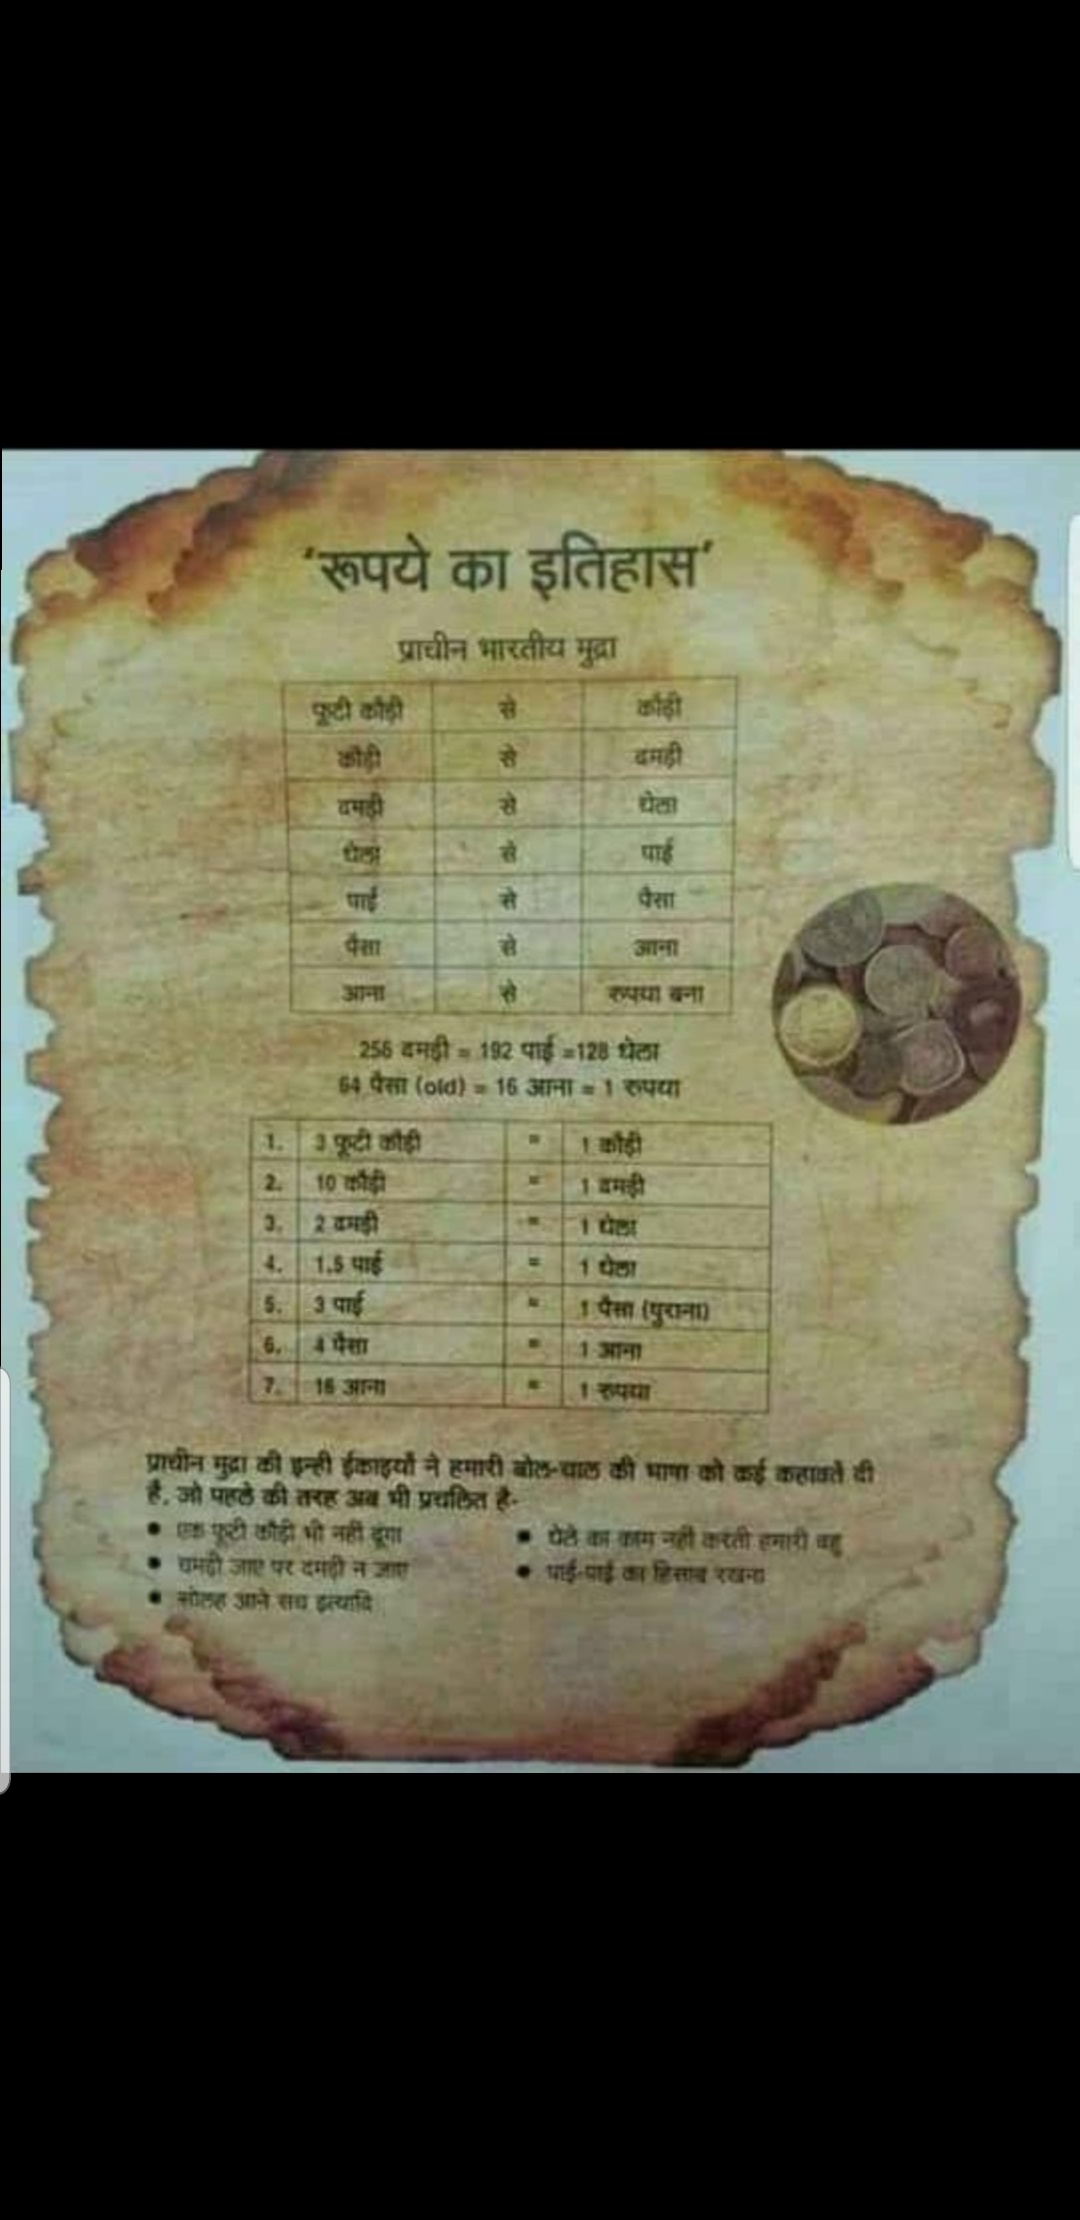 'रूपये का इतिहास'
प्राचीन भारतीय मुद्रा
फूटी कौड़ी से कौड़ी
कौड़ी से दमड़ी
दमड़ी से धेला
धेला से पाई
पाई से पैसा
पैसा से आना
आना से रुपया बना
256 दमड़ी = 192 पाई =128 धेला
64 पैसा (old) = 16 आना = 1 रुपया
1. 3 फूटी कौड़ी = 1 कौड़ी
2. 10 कौड़ी = 1 दमड़ी
3. 2 दमड़ी = 1 धेला
4. 1.5 पाई = 1 धेला
5. 3 पाई = 1 पैसा (पुराना)
6. 4 पैसा = 1 आना
7. 16 आना = 1 रुपया
प्राचीन मुद्रा की इन्ही ईकाइयों ने हमारी बोल-चाल की भाषा को कई कहावतें दी
है, जो पहले की तरह अब भी प्रचलित है-
• एक फूटी कौड़ी भी नहीं दूंगा
• धेले का काम नहीं करती हमारी बहु
• चमड़ी जाए पर दमड़ी न जाए
• पाई-पाई का हिसाब रखना
• सोलह आने सच इत्यादि